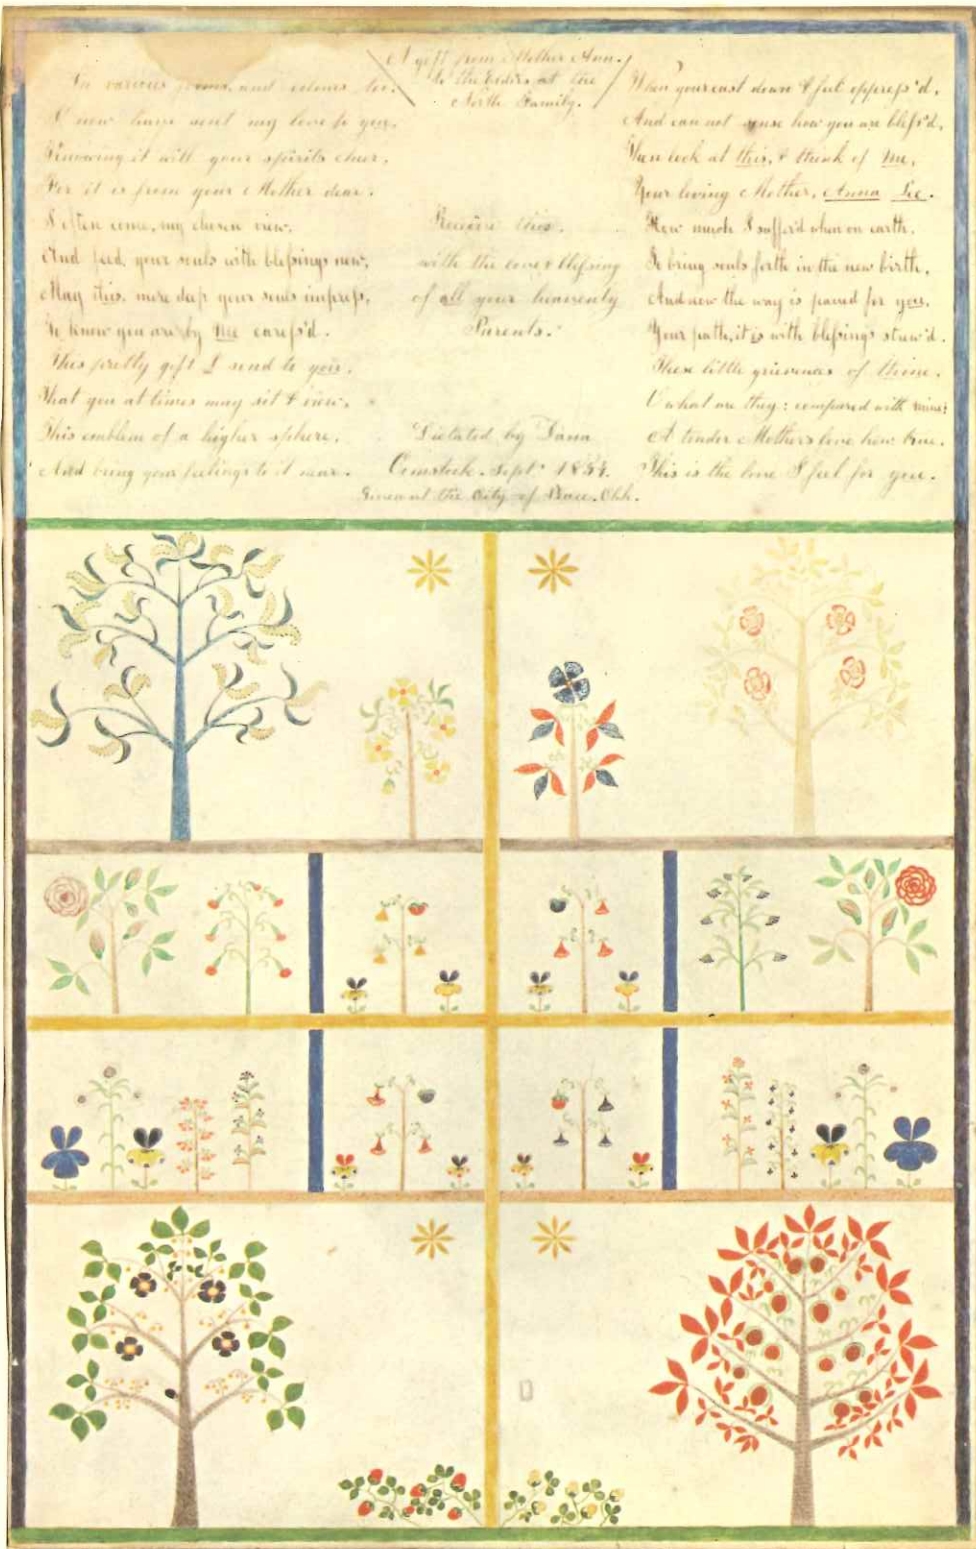 A gift from Mother Ann.
to the Elders at the
North Family.
In various forms, and colours too.
I now have sent my love to you.
Knowing it will your spirits cheer,
For it is from your Mother dear.
I often come, my chosen view.
And feed, your souls with blessings new,
May this, more deep your souls impress,
To know you are by me caress'd.
This pretty gift I send to you.
That you at times may sit & view.
This emblem of a higher sphere,
And bring your feelings to it near.
Receive this.
with the love & blessing
of all your heavenly
Parents.
Dictated by Dana
Comstock. Sept. 1854.
Given at the City of Peace.
When your cast down & feel oppress'd.
And can not sense how you are bless'd,
Then look at this, & think of me,
Your loving Mother, Anna Lee.
How much I suffer'd when on earth.
To bring souls forth in the new birth,
And now the way is paved for you,
Your path, it is with blessings strew'd.
These little grievances of thine.
O what are they: compared with mine;
A tender Mothers love how true.
This is the love I feel for you.